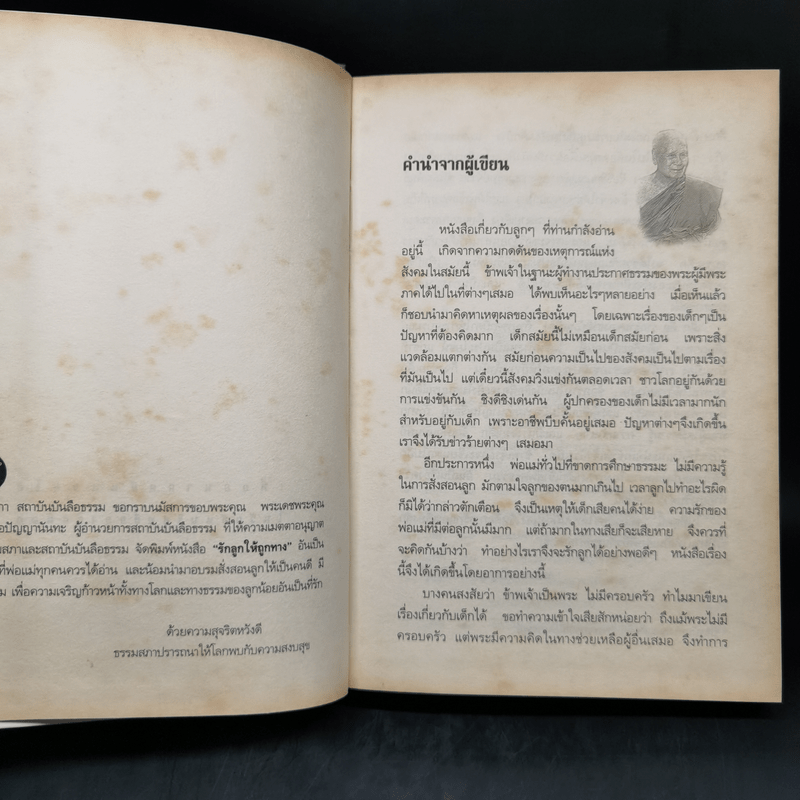 ภา สถาบันบันลือธรรม ขอกราบนมัสการขอบพระคุณ พระเดชพระคุณ
อปัญญานันทะ ผู้อำนวยการสถาบันบันลือธรรม ที่ให้ความเมตตาอนุญาต
มสภาและสถาบันบันลือธรรม จัดพิมพ์หนังสือ "รักลูกให้ถูกทาง" อันเป็น
ที่พ่อแม่ทุกคนควรได้อ่าน และน้อมนำมาอบรมสั่งสอนลูกให้เป็นคนดี มี
ม เพื่อความเจริญก้าวหน้าทั้งทางโลกและทางธรรมของลูกน้อยอันเป็นที่รัก
ด้วยความสุจริตหวังดี
ธรรมสภาปรารถนาให้โลกพบกับความสงบสุข
คำนำจากผู้เขียน
หนังสือเกี่ยวกับลูกๆ ที่ท่านกำลังอ่าน
อยู่นี้ เกิดจากความกดดันของเหตุการณ์แห่ง
สังคมในสมัยนี้ ข้าพเจ้าในฐานะผู้ทำงานประกาศธรรมของพระผู้มีพระ
ภาคได้ไปในที่ต่างๆเสมอ ได้พบเห็นอะไรๆหลายอย่าง เมื่อเห็นแล้ว
ก็ชอบนำมาคิดหาเหตุผลของเรื่องนั้นๆ โดยเฉพาะเรื่องของเด็กๆเป็น
ปัญหาที่ต้องคิดมาก เด็กสมัยนี้ไม่เหมือนเด็กสมัยก่อน เพราะสิ่ง
แวดล้อมแตกต่างกัน สมัยก่อนความเป็นไปของสังคมเป็นไปตามเรื่อง
ที่มันเป็นไป แต่เดี๋ยวนี้สังคมวิ่งแข่งกันตลอดเวลา ชาวโลกอยู่กันด้วย
การแข่งขันกัน ชิงดีชิงเด่นกัน ผู้ปกครองของเด็กไม่มีเวลามากนัก
สำหรับอยู่กับเด็ก เพราะอาชีพบีบคั้นอยู่เสมอ ปัญหาต่างๆจึงเกิดขึ้น
เราจึงได้รับข่าวร้ายต่างๆ เสมอมา
อีกประการหนึ่ง พ่อแม่ทั่วไปที่ขาดการศึกษาธรรมะ ไม่มีความรู้
ในการสั่งสอนลูก มักตามใจลูกของตนมากเกินไป เวลาลูกไปทำอะไรผิด
ก็มิได้ว่ากล่าวตักเตือน จึงเป็นเหตุให้เด็กเสียคนได้ง่าย ความรักของ
พ่อแม่ที่มีต่อลูกนั้นมีมาก แต่ถ้ามากในทางเสียก็จะเสียหาย จึงควรที่
จะคิดกันบ้างว่า ทำอย่างไรเราจึงจะรักลูกได้อย่างพอดีๆ หนังสือเรื่อง
นี้จึงได้เกิดขึ้นโดยอาการอย่างนี้
บางคนสงสัยว่า ข้าพเจ้าเป็นพระ ไม่มีครอบครัว ทำไมมาเขียน
เรื่องเกี่ยวกับเด็กได้ ขอทำความเข้าใจเสียสักหน่อยว่า ถึงแม้พระไม่มี
ครอบครัว แต่พระมีความคิดในทางช่วยเหลือผู้อื่นเสมอ จึงทำการ